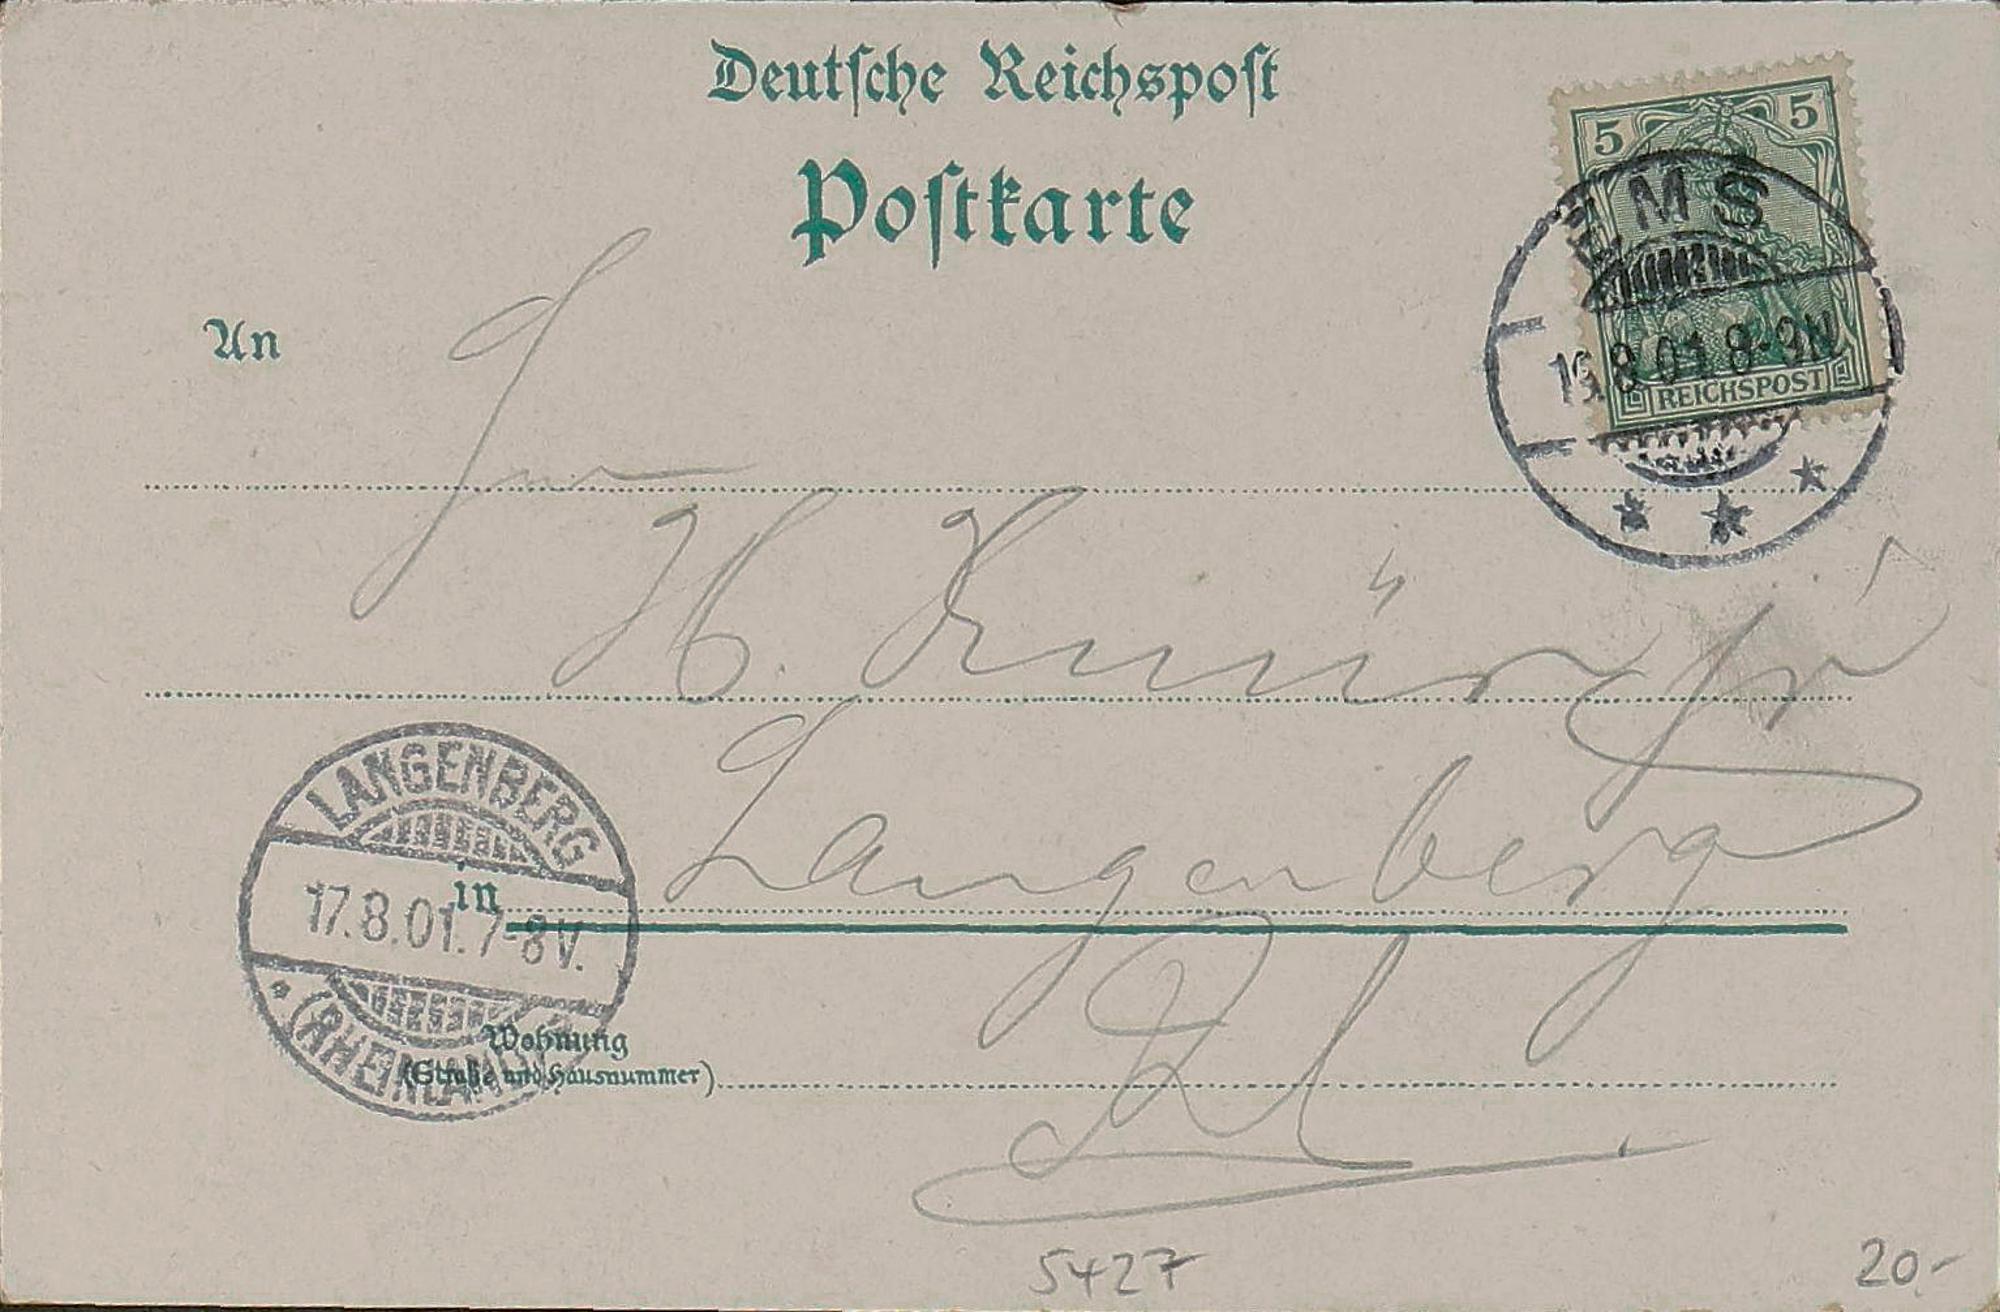 Deutsche Reichspost
Postkarte
5 5
EMS
16.8.01.8-9N
REICHSPOST
An
H.
Langenberg
LANGENBERG
17.8.01.7-8V.
(RHEINLAND)
in
Rl
Wohnung
(Straße und Hausnummer)
5427
20.-